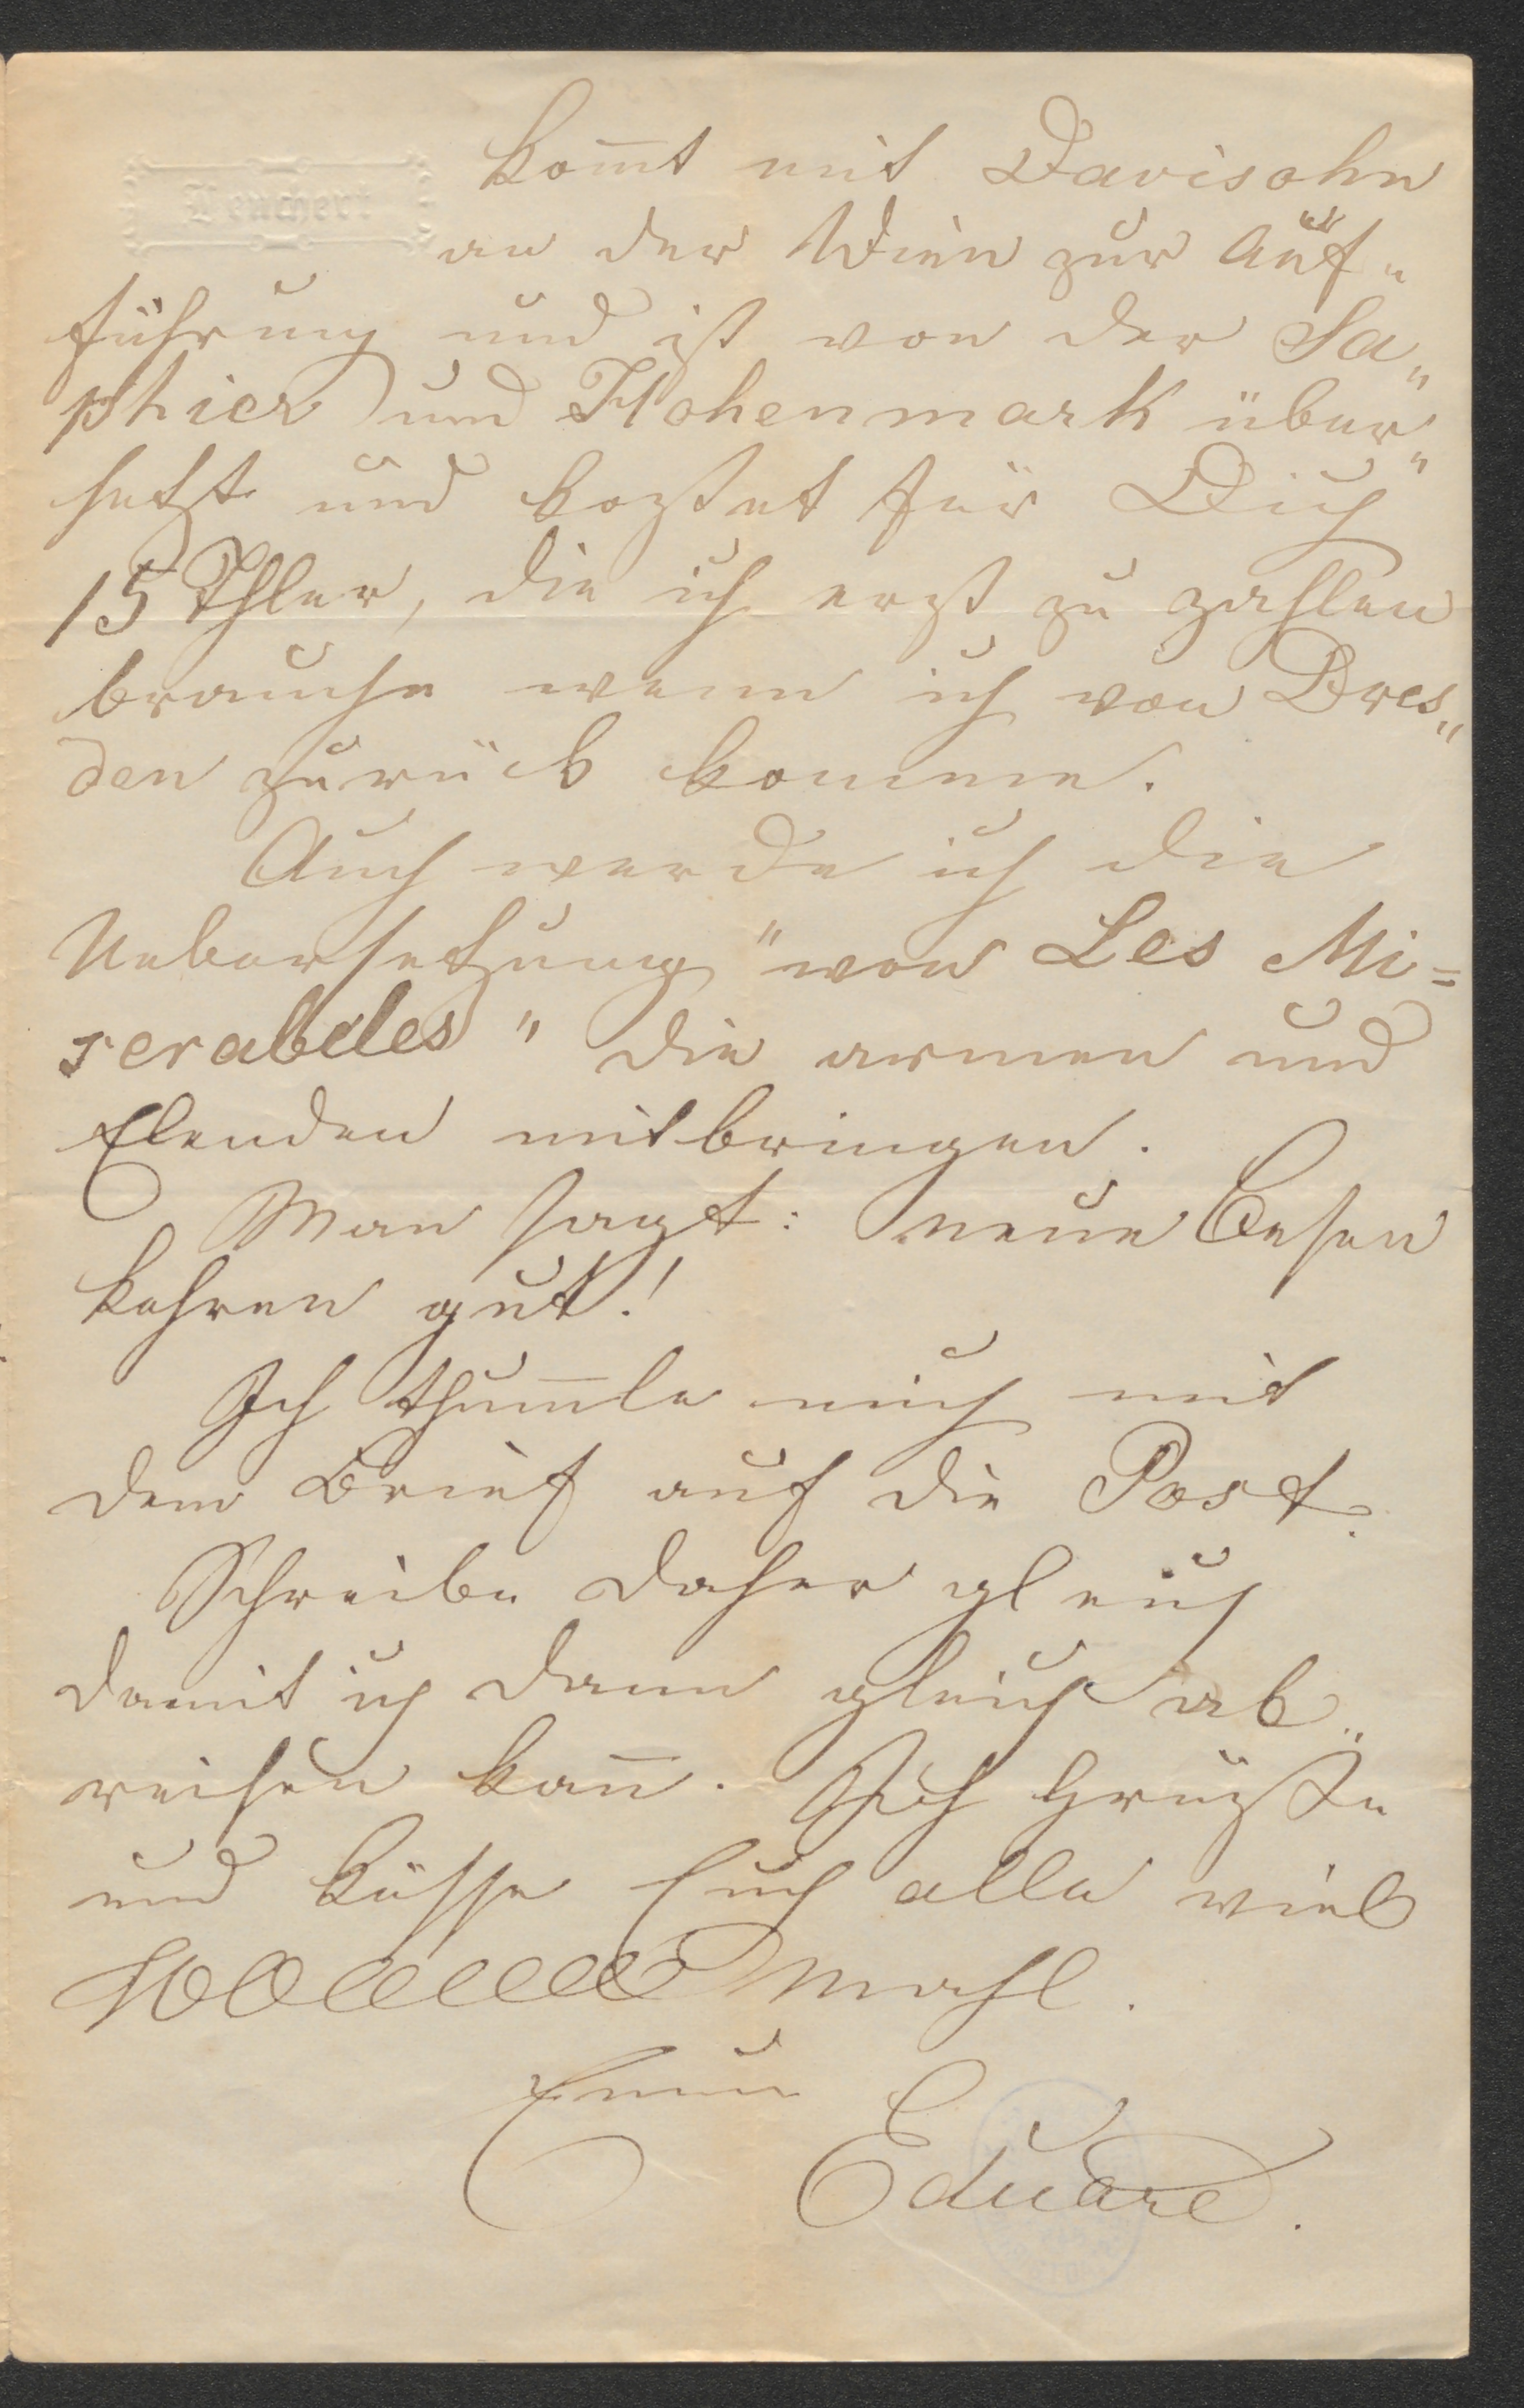 Teuchert
kom̄t mit Davisohn
an der Wien zur Auf„
führung und ist von der Sa„
phier und Hohenmark über„
setzt und kostet für Dich
15 Thler, die ich erst zu zahlen
brauche wenn ich von Dres„
den zurück komme.
Auch werde ich die
Uebersetzung "von Les Mi=
serabeles" die armen und
Elenden mitbringen.
Man sagt: neue Besen
kehren gut!
Ich thum̄le mich mit
dem Brief auf die Post.
Schreibe daher gleich
damit ich dann gleich ab„
reisen kan̄. Ich Grüße
und küsse Euch alle viel
mahl.
Euer
Eduard.